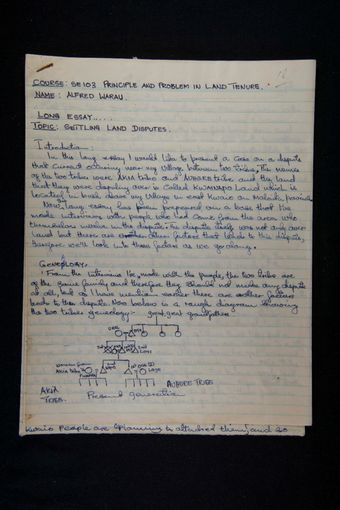 COURSE: SE103 PRINCIPLE AND PROBLEM IN LAND TENURE.
NAME: ALFRED WARAU.
LONG ESSAY.....
TOPIC: SETTLING LAND DISPUTES.
Introduction:
In this long essay I would like to present a case on a dispute
that current occuring near my village between two tribes. The names
of the two tribes were AKIA tribe and tribe and the land
that they were disputing over is called KWAINAFO Land which is
located in bush above my village in east Kwaio on Malaita province.
Now, this long essay has been prepared on a base that I've
made interviews with people who had come from the area who
themselves involve in the dispute. The dispute itself was not only over
Land but there are other factors that leads to this dispute,
therefore we'll look into those factors as we go along.
GENEOLOGY.
From the interviews I've made with the people, the two tribes are
of the same family and therefore they should not make any dispute
at all, but as I have mention earlier there are other factors
leads to this dispute. Now below is a rough diagram showing
the two tribes geneology:- great great grandfathers
AKIA TRIBE.
Present generation
TRIBE
Kwaio People are planning to attend them and so